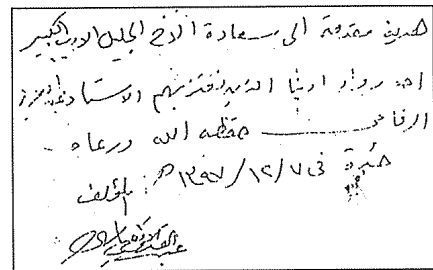 هدية مقدمة الى سعادة الأخ الجليل الأديب الكبير
احد رواد ادبنا الذين نفتز بهم الاستاذ عبدالعزيز
الرفاعي حفظه الله ورعاه
في ٧/ ١٢/ ١٣٩٧هـ
المؤلف